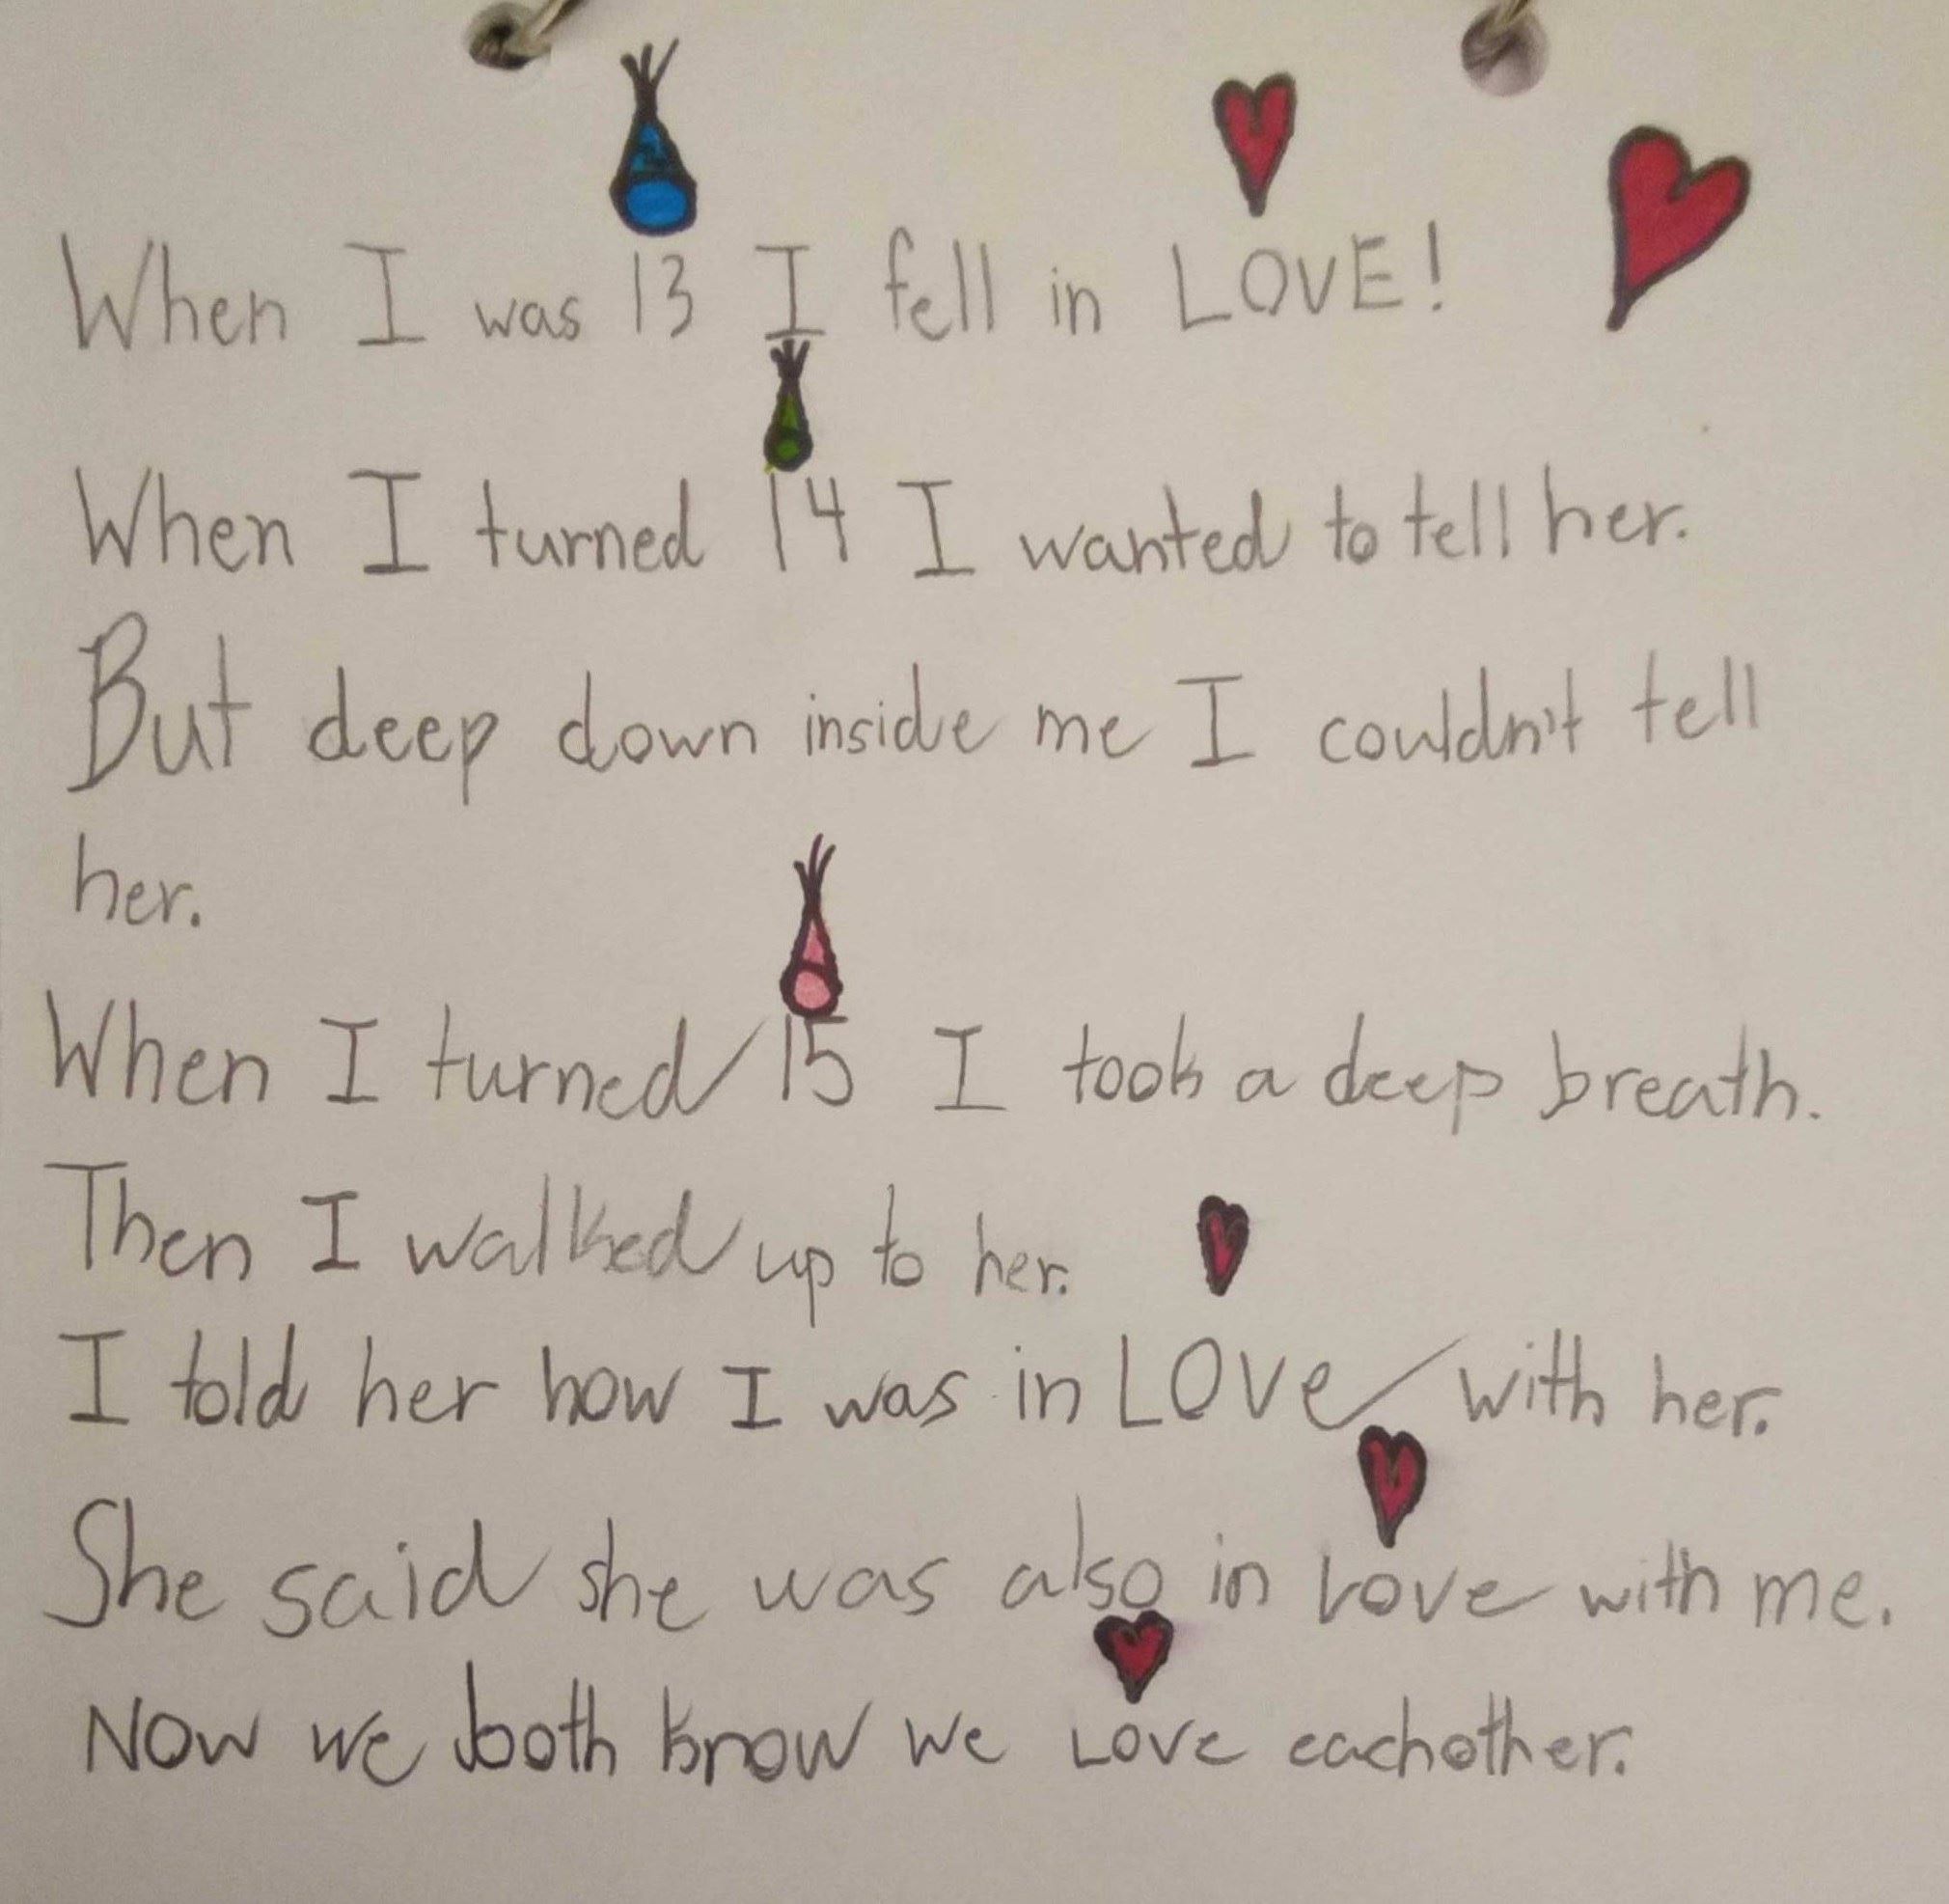 When I was 13 I fell in LOVE!
When I turned 14 I wanted to tell her.
But deep down inside me I couldn't tell
her.
When I turned 15 I took a deep breath.
Then I walked up to her.
I told her how I was in LOVe with her.
She said she was also in Love with me.
NOW we both know we LOVe eachother.